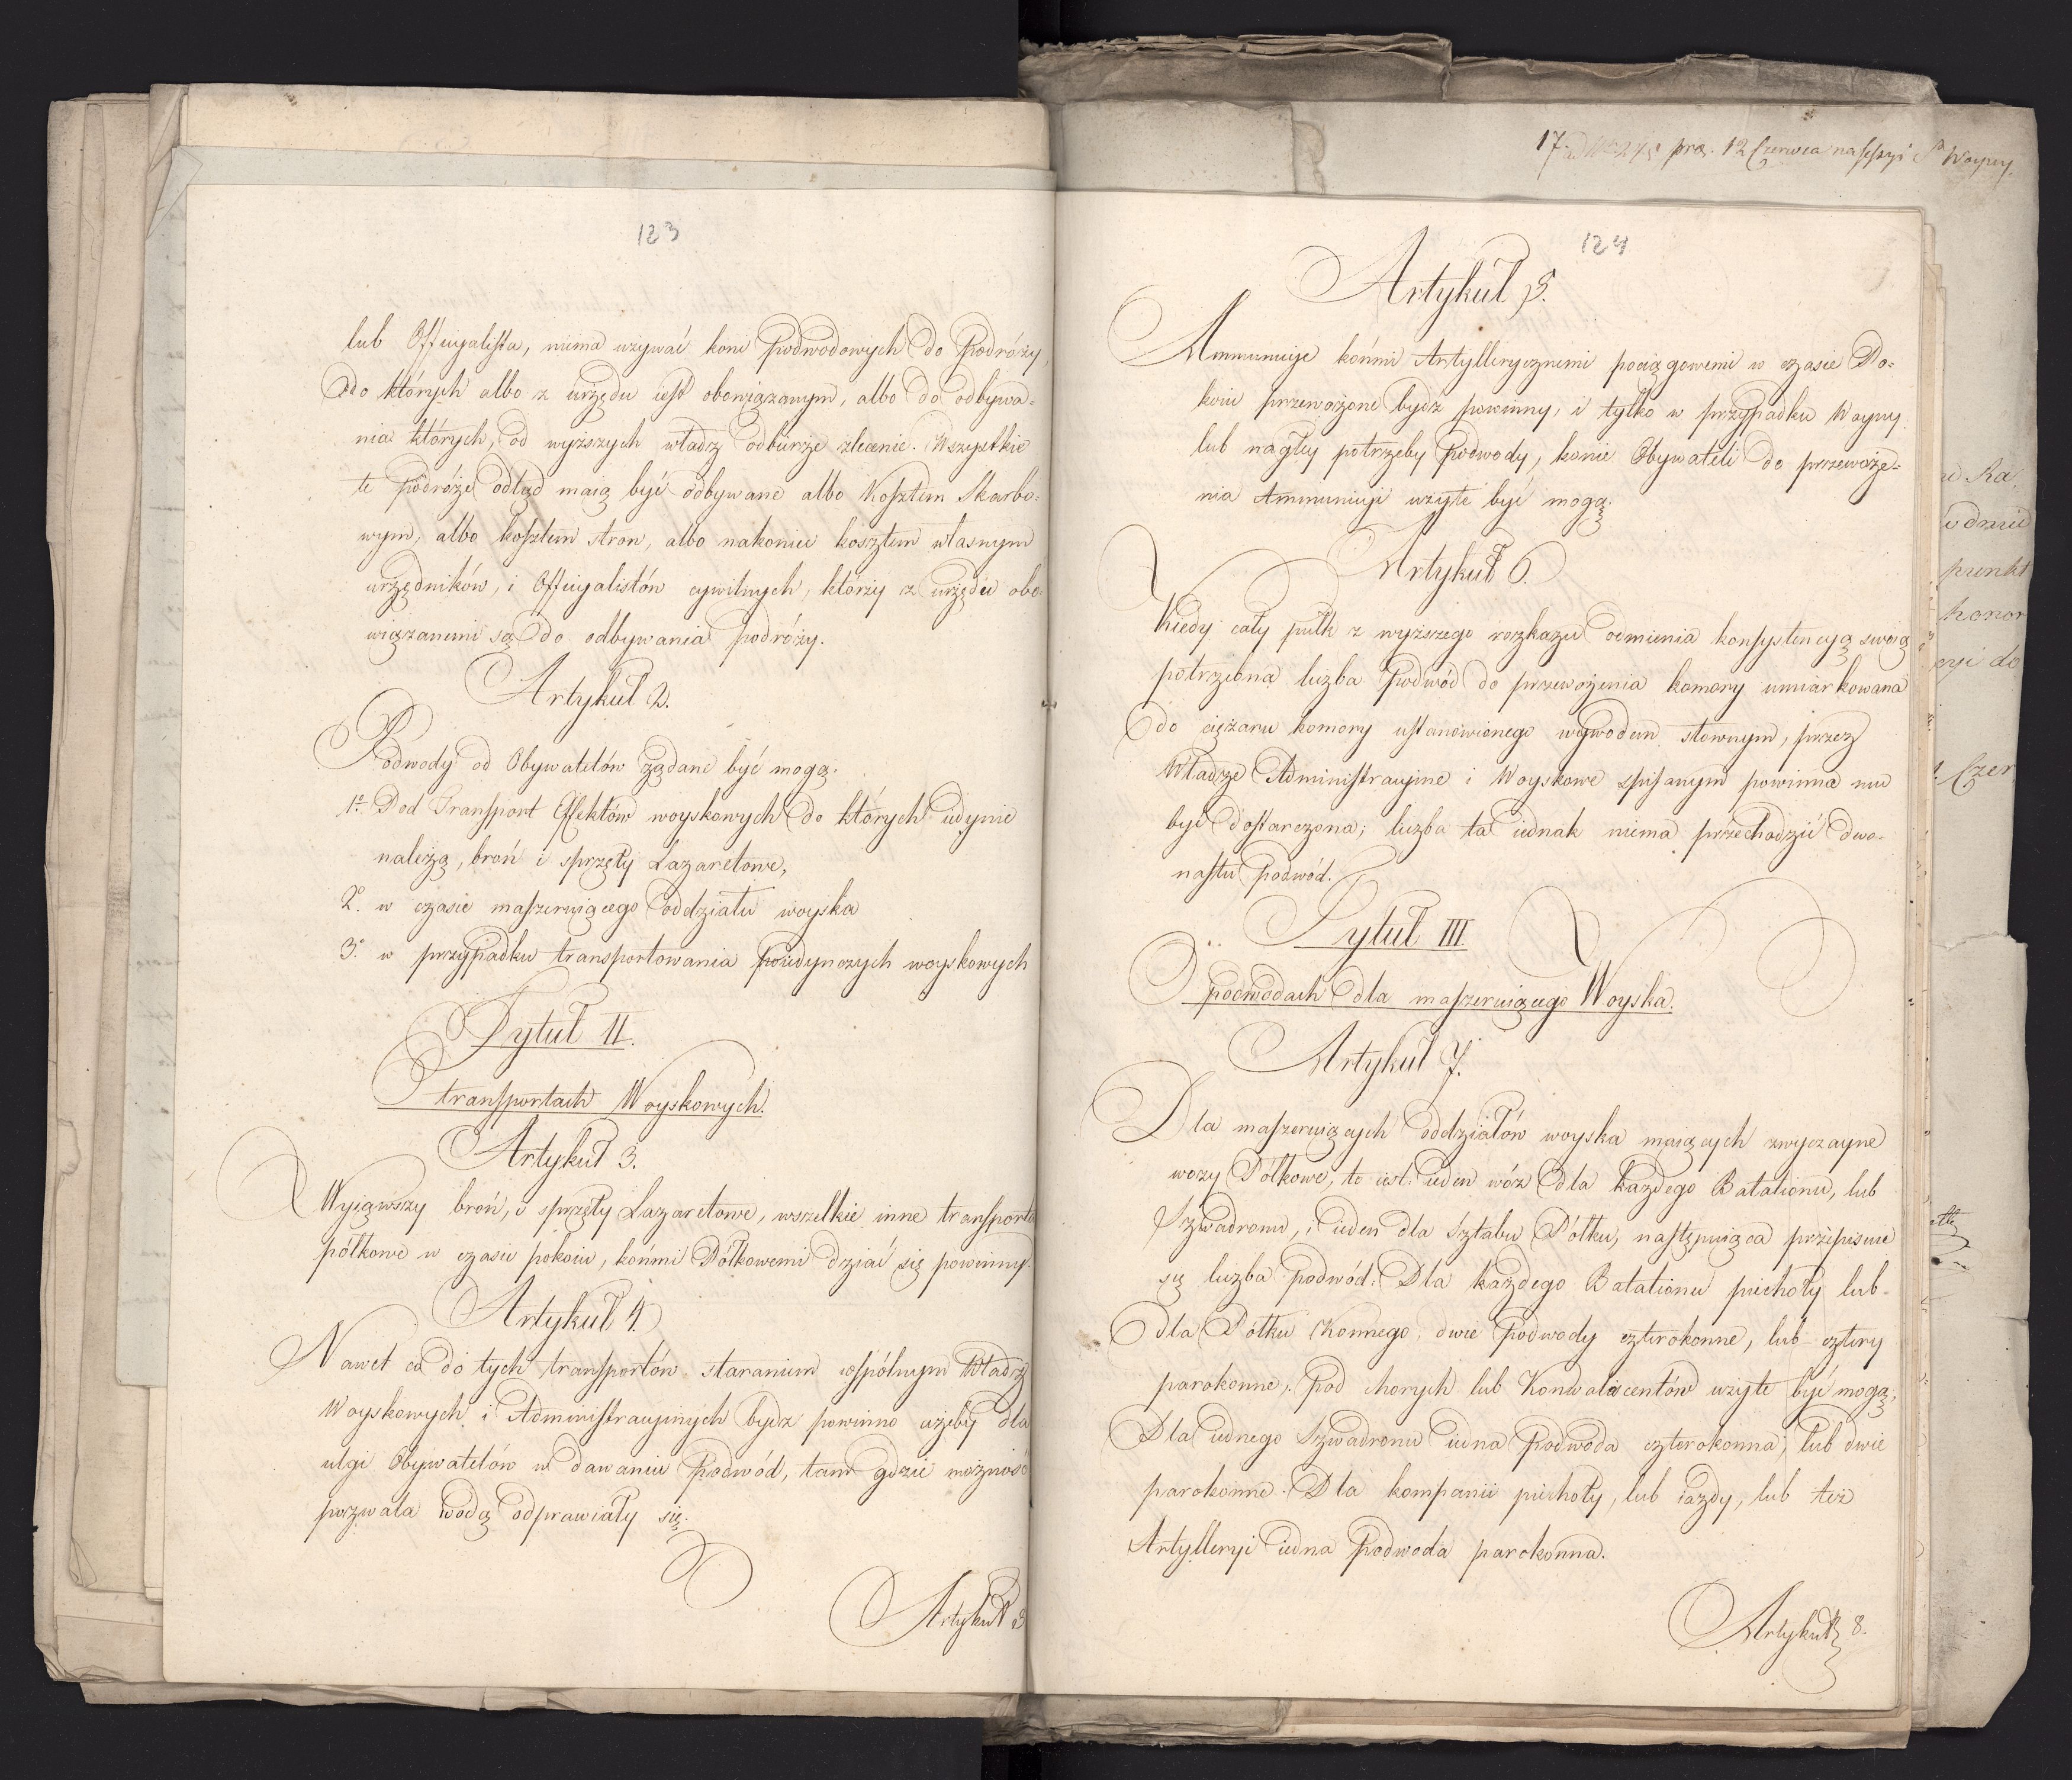 123
lub Officyalista, niema używać koni Podwodowych do Podróży,
do których albo z urzędu iest obowiązanym, albo do odbywa-
nia których, od wyższych władz odbierze zlecenie. Wszystkie
te podróże odtąd maią być odbywane albo Kosztem Skarbo-
wym, albo kosztem stron, albo nakoniec kosztem własnym
urzędników, i Officyalistów cywilnych, którzy z urzędu obo-
wiązanemi są do odbywania podróży.
Artykuł 2.
Podwody od Obywatelów żądane być mogą.
1º Pod Transport Effektów woyskowych do których iedynie
należą, broń i sprzęty Lazaretowe,
2º w czasie maszeruiącego oddziału woyska
3º w przypadku transportowania poiedynczych woyskowych
Tytuł II.
O transportach Woyskowych.
Artykuł 3.
Wyiąwszy broń, i sprzęty Lazaretowe, wszelkie inne transporta
półkowe w czasie pokoiu, końmi Półkowemi dziać się powinny.
Artykuł 4.
Nawet co do tych transportów staraniem wspólnym Władz
Woyskowych i Administracyinych bydz powinno ażeby dla
ulgi Obywatelów w dawaniu Podwód, tam gdzie możność
pozwala wodą odprawiały się.
Artykuł
17 pras. 12 Czerwca na sessyi Woyny.
124
Artykuł 5.
Ammunicye końmi Artyllerycznemi pociągowemi w czasie Po-
koiu przewożone bydz powinny, i tylko w przypadku Woyny
lub nagłey potrzeby Podwody, konie Obywateli do przewoże-
nia Ammunicyi użyte być mogą.
Artykuł 6.
Kiedy cały pułk z wyższego rozkazu odmienia konsystencyą swoią
potrzebna liczba Podwód do przewożenia komory umiarkowana
do ciężaru komory ustanowionego wywodem słownym, przez
Władze Administracyine i Woyskowe spisanym powinna mu
być dostarczona; liczba ta iednak niema przechodzić dwu-
nastu Podwód.
Tytuł III
O podwodach dla maszeruiącego Woyska.
Artykuł 7.
Dla maszeruiących oddziałów woyska maiących zwyczayne
wozy Półkowe, to iest: ieden wóz dla każdego Batalionu, lub
Szwadronu, i ieden dla Sztabu Półku, następuiąca przepisuie
się liczba podwód: Dla każdego Batalionu piechoty lub
dla Półku Konnego, dwie Podwody czterokonne, lub cztery
parokonne, Pod chorych lub Konwalescentów użyte być mogą,
Dla iednego Szwadronu iedna Podwoda czterokonna, lub dwie
parokonne. Dla kompanii piechoty, lub iazdy, lub też
Artylleryi iedna Podwoda parokonna.
Artykuł 8.
punkt
honor
do
Czer